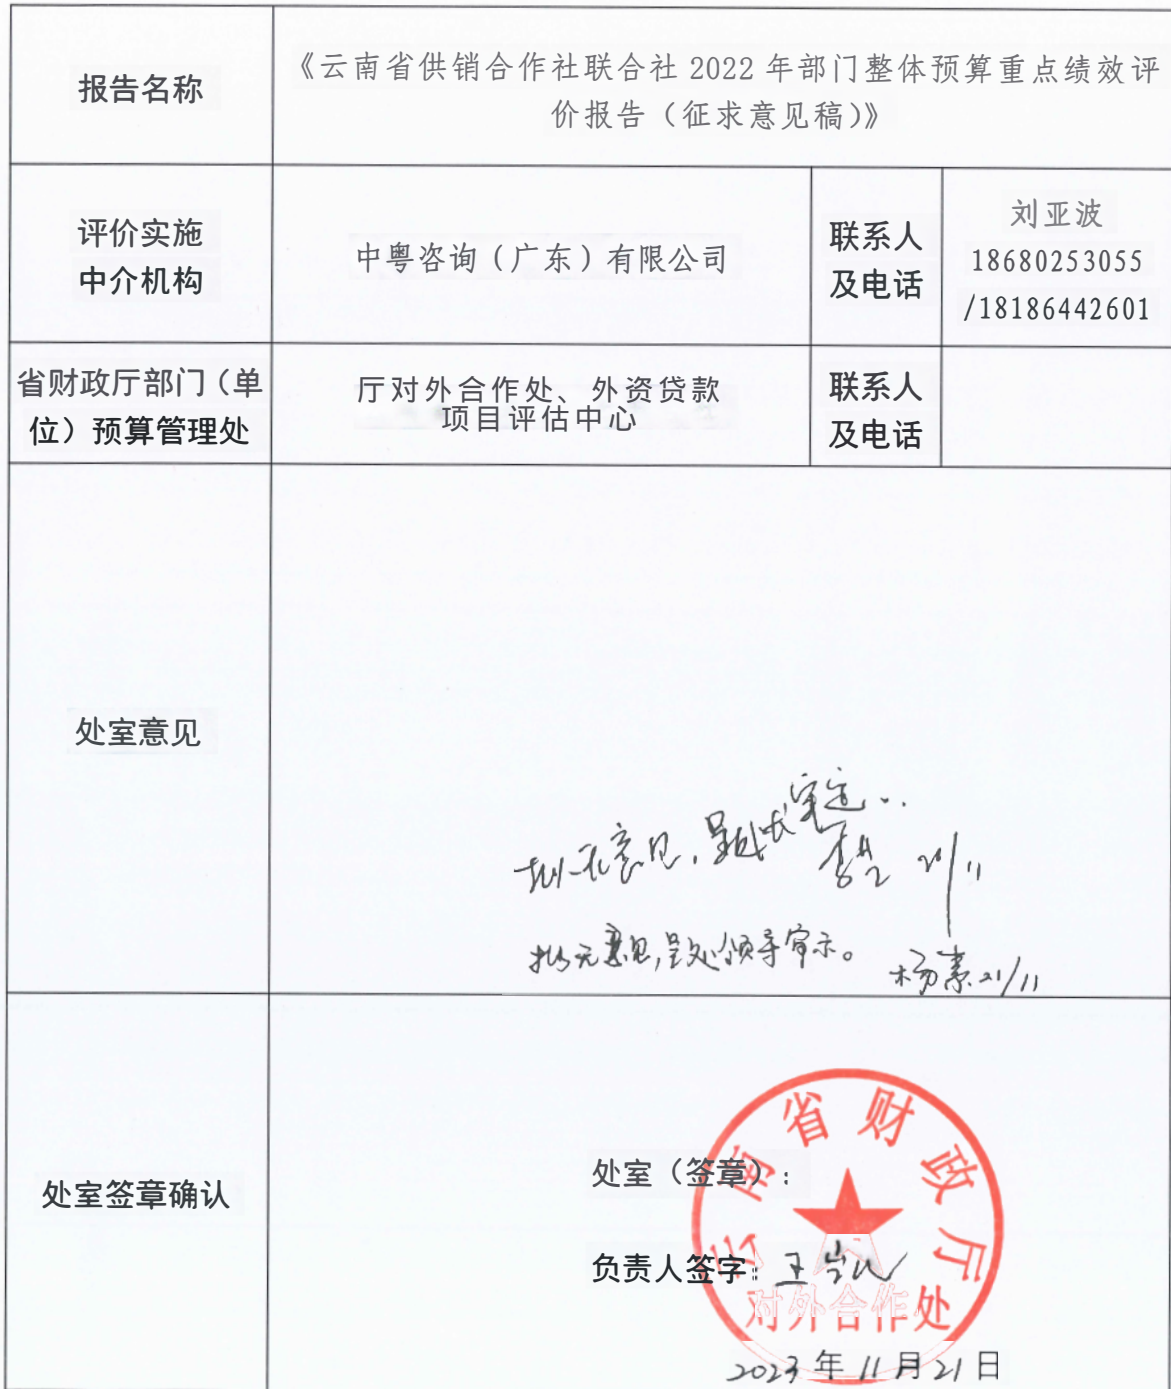 报告名称
《云南省供销合作社联合社 2022 年部门整体预算重点绩效评
价报告（征求意见稿）》
评价实施
中介机构
中粤咨询（广东）有限公司
联系人
及电话
刘亚波
18680253055
/18186442601
省财政厅部门（单
位）预算管理处
厅对外合作处、外资贷款
项目评估中心
联系人
及电话
处室意见
拟无意见，呈 审定
21/11
拟无意见，呈处领导审示。
杨素 21/11
处室签章确认
云南省财政厅
对外合作处
处室（签章）：
负责人签字：王
2023 年 11 月 21 日